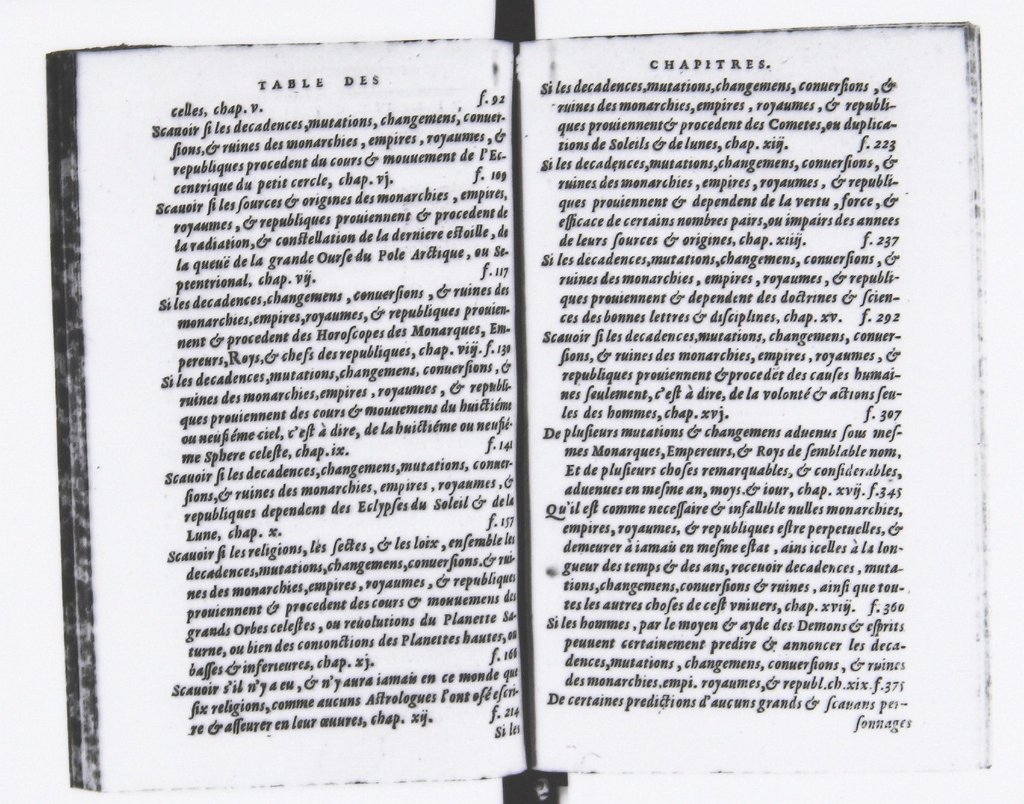 TABLE DES
celles, chap. v. f. 92
Scauoir ſi les decadences,mutations, changemens, conuer-
ſions,& ruines des monarchies, empires, royaumes, &
republiques procedent du cours & mouuement de l'Ec-
centrique du petit cercle, chap. vj. f. 109
Scauoir ſi les ſources & origines des monarchies, empires,
royaumes, & republiques prouiennent & procedent de
la radiation,& conſtellation de la derniere eſtoille, de
la queuë de la grande Ourſe du Pole Arctique, ou Se-
ptentrional, chap. vij. f. 117
Si les decadences,changemens, conuerſions, & ruines des
monarchies,empires,royaumes, & republiques prouien-
nent & procedent des Horoſcopes des Monarques, Em-
pereurs, Roys,& chefs des republiques, chap. viij. f. 130
Si les decadences,mutations,changemens, conuerſions, &
ruines des monarchies,empires, royaumes, & republi-
ques prouiennent des cours & mouuemens du huictiéme
ou neufiéme ciel, c'eſt à dire, de la huictiéme ou neufié-
me Sphere celeſte, chap. ix. f. 141
Scauoir ſi les decadences,changemens,mutations, conuer-
ſions,& ruines des monarchies, empires, royaumes, &
republiques dependent des Eclypſes du Soleil & de la
Lune, chap. x. f. 157
Scauoir ſi les religions, les ſectes, & les loix, enſemble les
decadences,mutations,changemens,conuerſions,& rui-
nes des monarchies,empires, royaumes, & republiques
prouiennent & procedent des cours & mouuemens des
grands Orbes celeſtes, ou reuolutions du Planette Sa-
turne, ou bien des conionctions des Planettes hautes, ou
baſſes & inferieures, chap. xj. f. 166
Scauoir s'il n'y a eu, & n'y aura iamais en ce monde que
ſix religions, comme aucuns Aſtrologues l'ont oſé eſcri-
re & aſſeurer en leur œuures, chap. xij. f. 214
Si les
CHAPITRES.
Si les decadences,mutations,changemens, conuerſions, &
ruines des monarchies,empires, royaumes, & republi-
ques prouiennent & procedent des Cometes,ou duplica-
tions de Soleils & de lunes, chap. xiij. f. 223
Si les decadences,mutations,changemens, conuerſions, &
ruines des monarchies, empires, royaumes, & republi-
ques prouiennent & dependent de la vertu, force, &
efficace de certains nombres pairs,ou impairs des annees
de leurs ſources & origines, chap. xiiij. f. 237
Si les decadences,mutations,changemens, conuerſions, &
ruines des monarchies, empires, royaumes, & republi-
ques prouiennent & dependent des doctrines & ſcien-
ces des bonnes lettres & diſciplines, chap. xv. f. 292
Scauoir ſi les decadences,mutations, changemens, conuer-
ſions, & ruines des monarchies, empires, royaumes, &
republiques prouiennent & procedẽt des cauſes humai-
nes ſeulement, c'eſt à dire, de la volonté & actions ſeu-
les des hommes, chap. xvj. f. 307
De pluſieurs mutations & changemens aduenus ſous meſ-
mes Monarques, Empereurs, & Roys de ſemblable nom,
Et de pluſieurs choſes remarquables, & conſiderables,
aduenues en meſme an, moys, & iour, chap. xvij. f. 345
Qu'il eſt comme neceſſaire & infallible nulles monarchies,
empires, royaumes, & republiques eſtre perpetuelles, &
demeurer à iamais en meſme eſtat, ains icelles à la lon-
gueur des temps & des ans, receuoir decadences, muta-
tions,changemens, conuerſions & ruines, ainſi que tou-
tes les autres choſes de ceſt vniuers, chap. xviij. f. 360
Si les hommes, par le moyen & ayde des Demons & eſprits
peuuent certainement predire & annoncer les deca-
dences,mutations, changemens, conuerſions, & ruines
des monarchies. empi. royaumes,& republ. ch. xix. f. 375
De certaines predictions d'aucuns grands & ſcauans per-
ſonnages